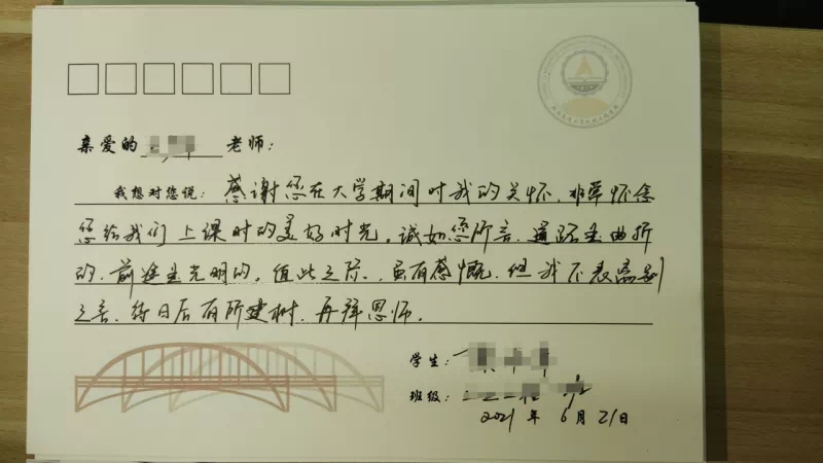 亲爱的 老师：
我想对您说：感谢您在大学期间对我的关怀，非常怀念
您给我们上课时的美好时光。诚如您所言，道路是曲折
的，前途是光明的，值此之际，虽有感慨，但我不表离别
之言，待日后有所建树，再拜恩师。
学生：
班级：
2021年6月21日